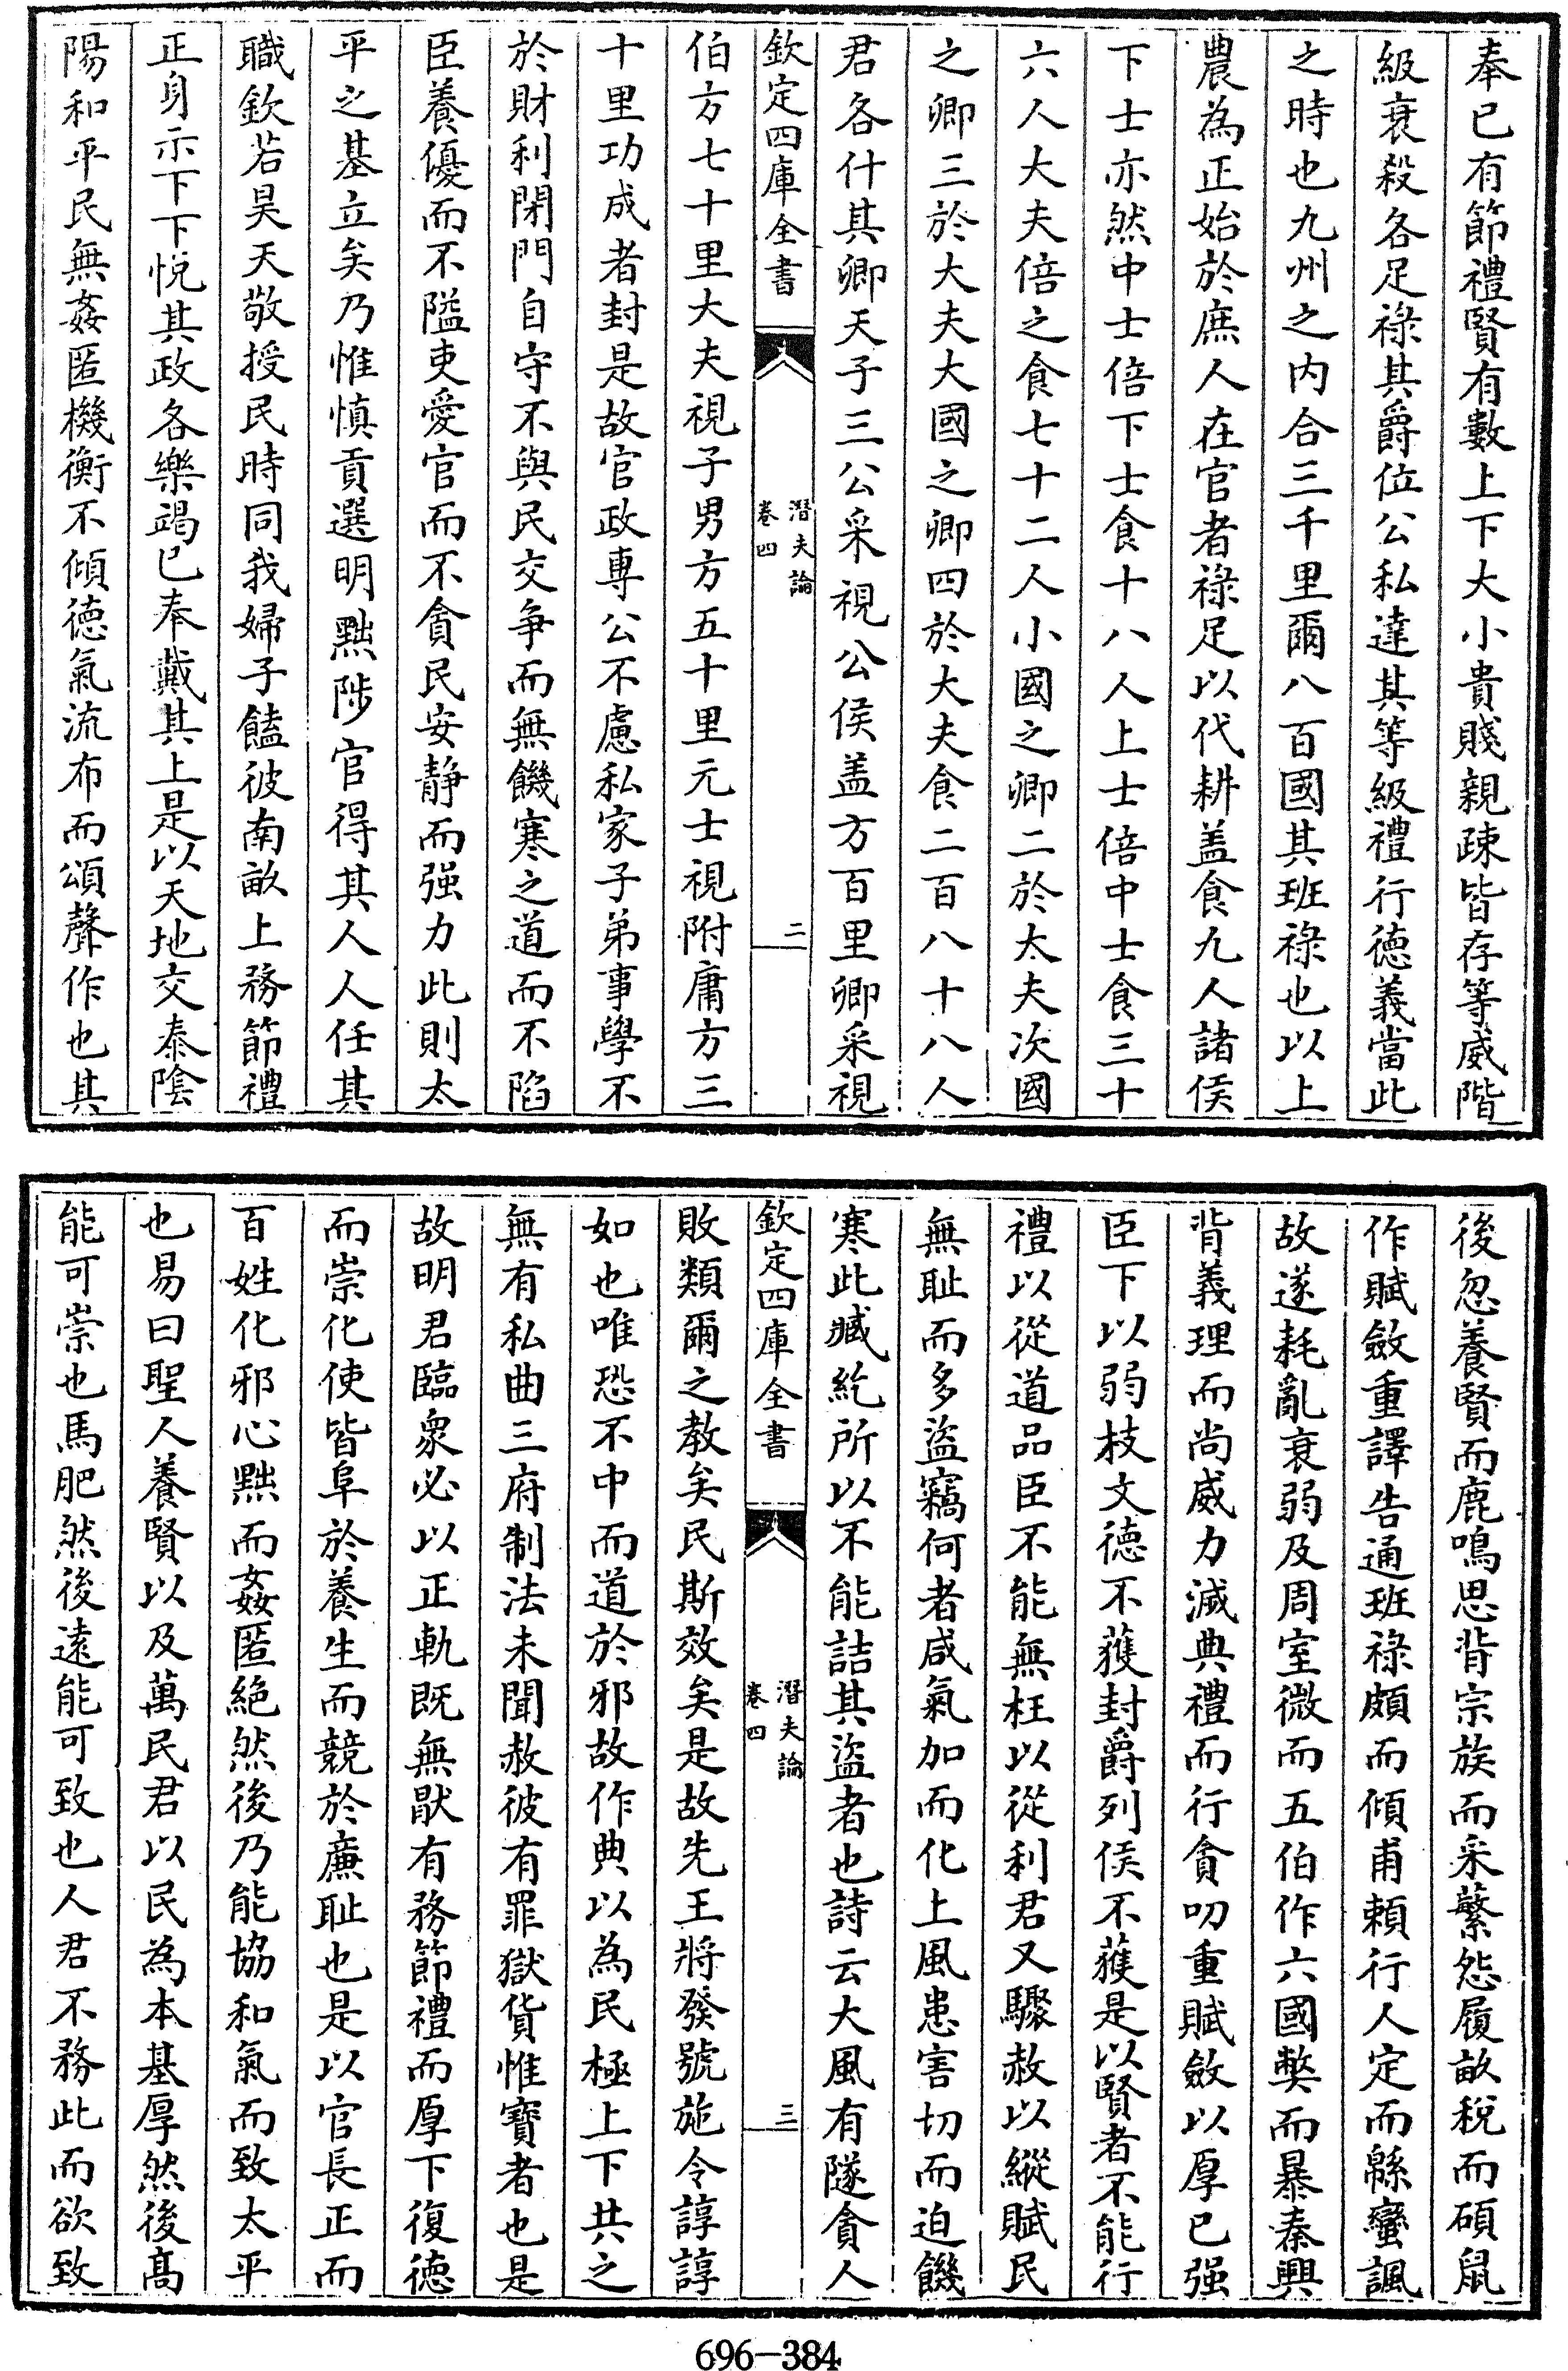 奉已有節禮賢有數上下大小貴賤親疎皆存等威階
級衰殺各足祿其爵位公私達其等級禮行德義當此
之時也九州之内合三千里爾八百國其班祿也以上
農為正始於庶人在官者祿足以代耕盖食九人諸侯
下士亦然中士倍下士食十八人上士倍中士食三十
六人大夫倍之食七十二人小國之卿二於太夫次國
之卿三於大夫大國之卿四於大夫食二百八十八人
君各什其卿天子三公采視公侯盖方百里卿采視
欽定四庫全書 潛夫論 卷四 二
伯方七十里大夫視子男方五十里元士視附庸方三
十里功成者封是故官政專公不慮私家子弟事學不
於財利閉門自守不與民交爭而無饑寒之道而不陷
臣養優而不隘吏愛官而不貪民安静而强力此則太
平之基立矣乃惟慎貢選明黜陟官得其人人任其
職欽若昊天敬授民時同我婦子饁彼南畝上務節禮
正身示下下悅其政各樂竭已奉戴其上是以天地交泰陰
陽和平民無姦匿機衡不傾德氣流布而頌聲作也其
後忽養賢而鹿鳴思背宗族而采蘩怨履畝稅而碩鼠
作賦斂重譯告通班祿頗而傾甫頼行人定而緜蠻諷
故遂耗亂衰弱及周室微而五伯作六國獘而暴秦興
背義理而尚威力滅典禮而行貪叨重賦斂以厚已强
臣下以弱枝文德不獲封爵列侯不獲是以賢者不能行
禮以從道品臣不能無枉以從利君又驟赦以縱賦民
無耻而多盜竊何者咸氣加而化上風患害切而迫饑
寒此臧紇所以不能詰其盜者也詩云大風有隧貪人
欽定四庫全書 潛夫論 卷四 三
敗類爾之教矣民斯效矣是故先王將發號施令諄諄
如也唯恐不中而道於邪故作典以為民極上下共之
無有私曲三府制法未聞赦彼有罪獄貨惟寶者也是
故明君臨衆必以正軌既無猒有務節禮而厚下復德
而崇化使皆阜於養生而競於廉耻也是以官長正而
百姓化邪心黜而姦匿絶然後乃能協和氣而致太平
也易曰聖人養賢以及萬民君以民為本基厚然後髙
能可崇也馬肥然後逺能可致也人君不務此而欲致
696-384